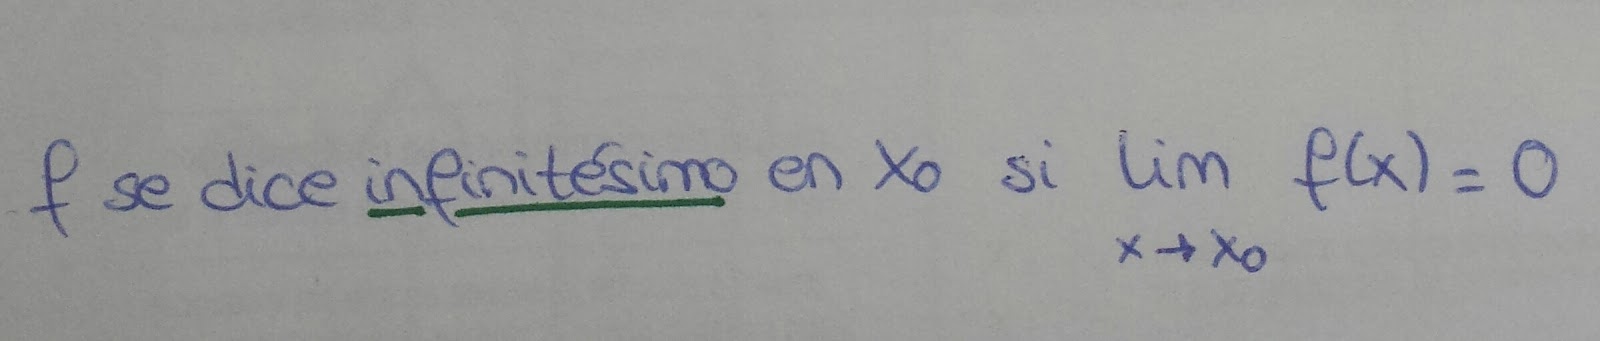 f se dice infinitésimo en x₀ si lim f(x) = 0
x → x₀